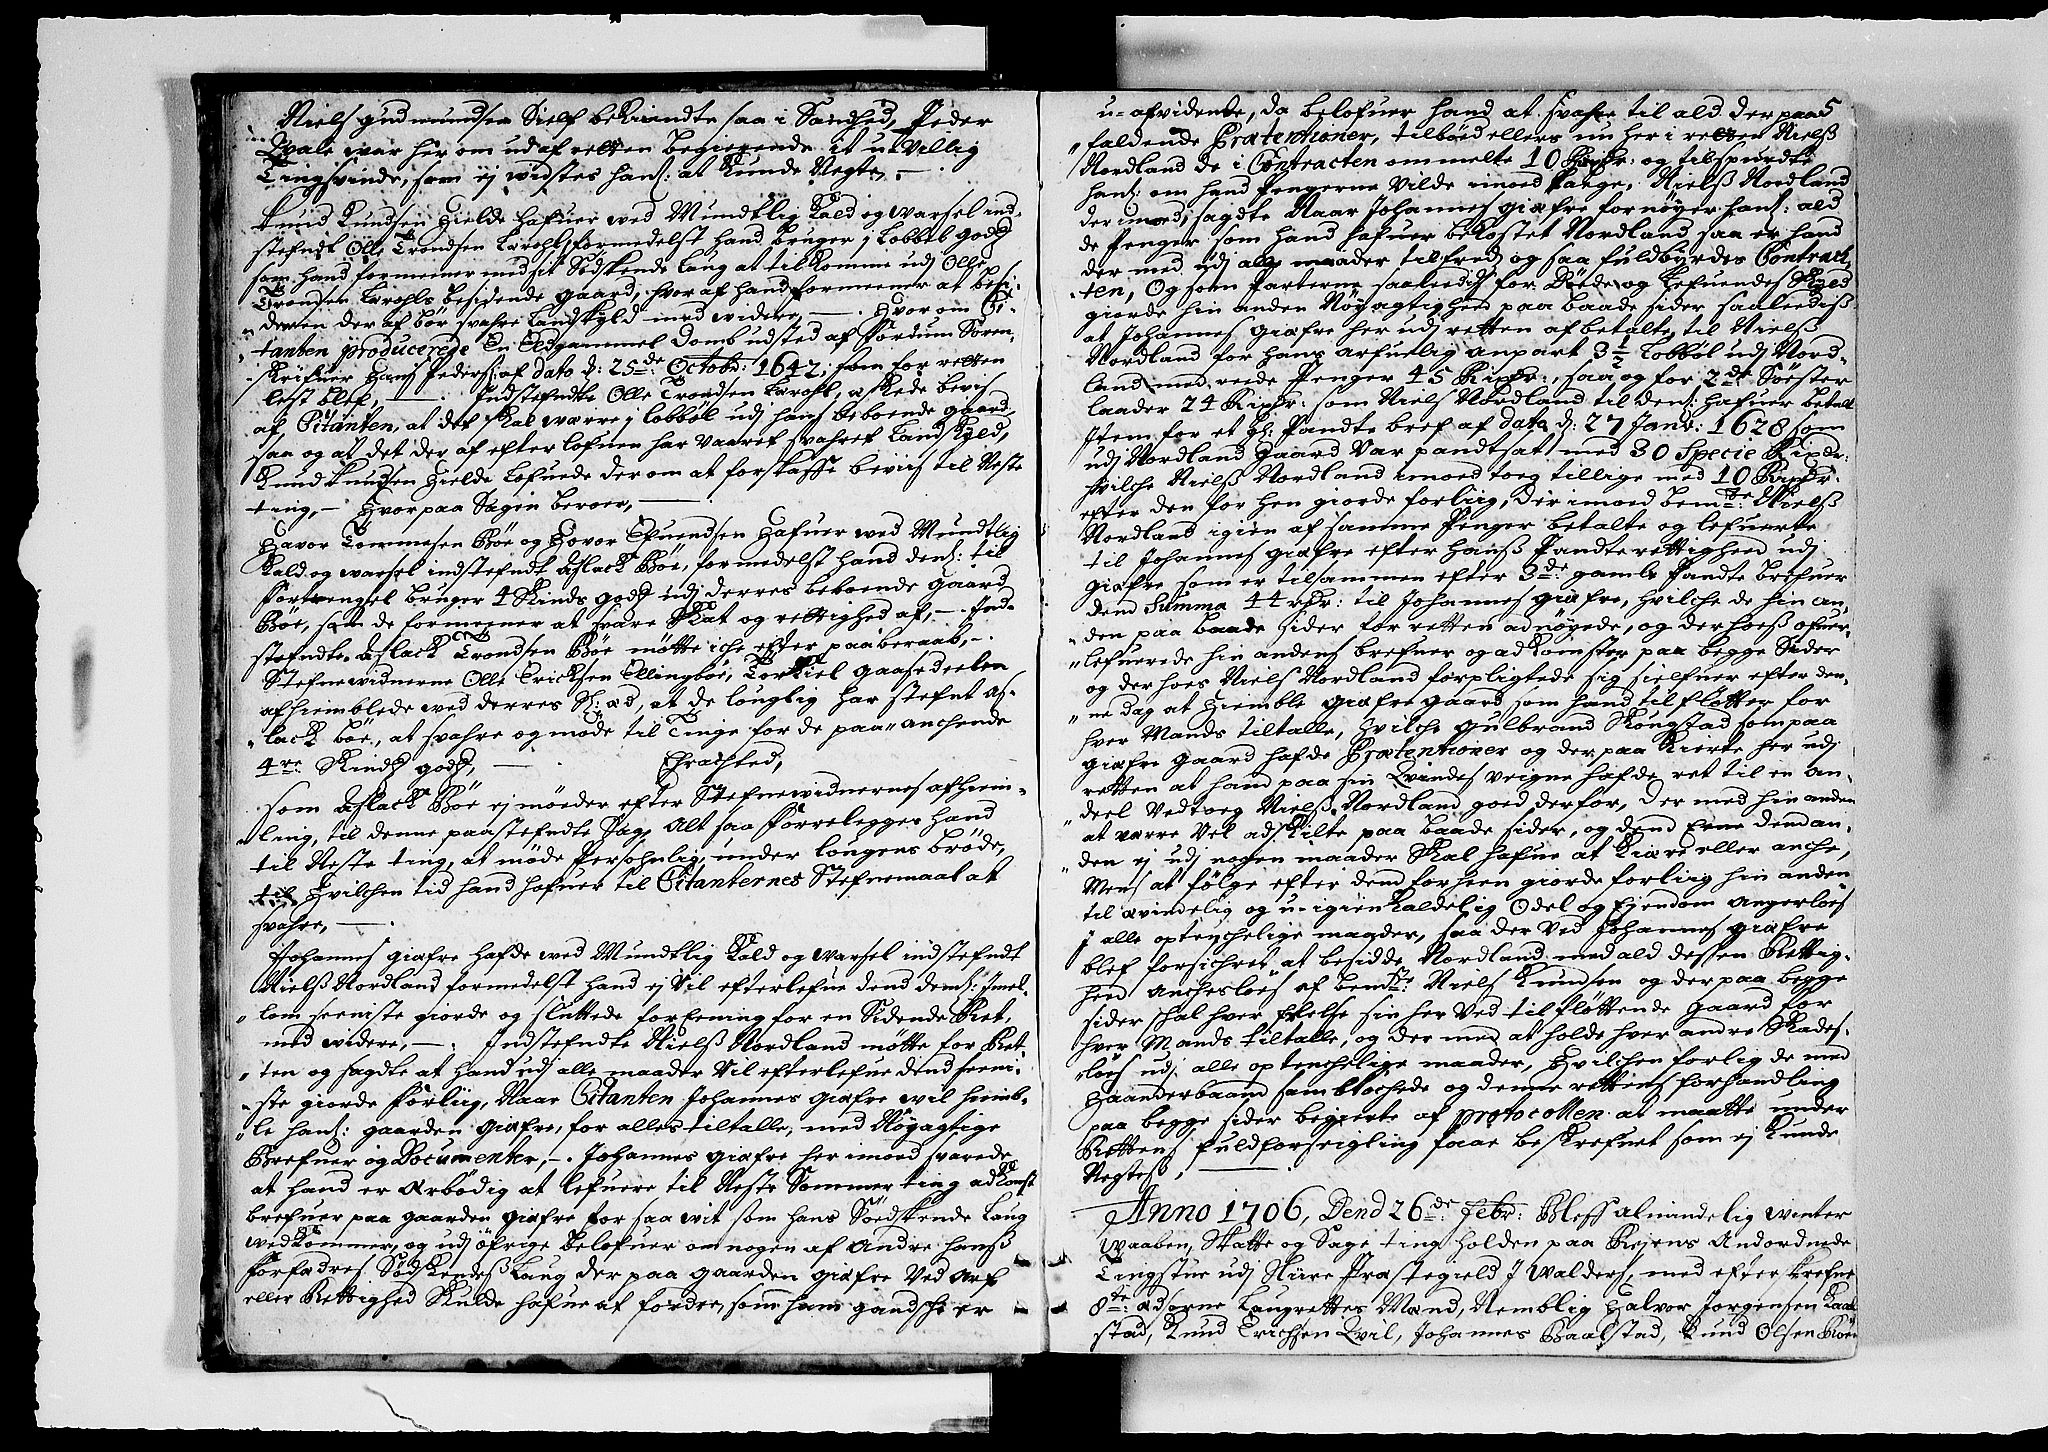 Niels gudmundsen Sielf bekiendte saa i Sandhed, Peder
Qvale war her om ud af retten begierende it u-villig
Tingsvinde, som ej widstes hans: at kunde Negte, —
Knud Knudsen Hielde hafuer wed Mundtlig Kald og warsel ind-
stefndt Olle Trondsen Larohl, formedelst hand bruger j Lobböl godz
som hand formeener med sit Södskende laug at tilkomme udj Olle
Trondsen Larohls besidende gaard, hvor af hand formeener at besi-
deren der af bör svahre landskyld med widere, — . Hvor om Ci-
tanten producerede En Eldgammel Domb udsted af fordum Soren-
skrifuer Hans Peders: af dato d: 25de Octobr: 1642, som for retten
lest blef, — . Indstefndte Olle Trondsen Larohl, askede bevis
af Citanten, at der skal være j lobböl udj hans beboende gaard,
saa og at det der af efter lofuen har vaaret svahret Landskyld,
Knud Knudsen Hielde lofuede der om at forskaffe bevis til Neste
ting, — Hvor paa Sagen beroer, —
Havor Tommesen Böe og Hovor Efuendsen Hafuer wed Mundtlig
Kald og warsel indstefndt Aslack Böe, formedelst hand dens: til
forvengsel bruger 4 Skinds godz udj derres beboende gaard
Böe, som de formeener at svare Skat og rettighed af, — . Ind-
stefndte Aslack Trondsen Böe mötte iche efter paaberaab, — .
Stefnewidnerne Olle Ericksen Ellingböe, Torkiel Gaasedeelen
afhiemblede wed derres Ed, at de louglig har stefnt As-
lack Böe, at svahre og möde til Tinge for de paa-anchende
4re: Skindz godz, — . Efrachted,
som Aslack Böe ej möeder efter Stefnewidnernes afhiem-
ling, til denne paastefndte Sag, Alt saa forrelegges hand
til Neste ting, at möde Personlig, under lougens bröde,
til Hvilchen tid hand hafuer til Citanternes Stefnemaal at
svahre, — .
Johannes giæfre hafde wed Mundtlig Kald og warsel indstefndt
Nielss Nordland formedelst hand ej vil efterlefue dend dens: Imel-
lom seeniste giorde og sluttede forening for en Sidende Ret,
med widere, — . Indstefndte Nielss Nordland mötte for Ret-
ten og sagde at hand udj alle maader vil efterlefue dend seeni-
ste giorde forliig, Naar Citanten Johannes giæfre wil hiemb-
le hans: gaarden giæfre, for alles tiltalle, med Nöyagtige
Brefuer og Documenter, — . Johannes giæfre her imoed svarede
at hand er ærbödig at lefuere til Neste Sommer ting adkomst
brefuer paa gaarden giæfre for saa wit som hans Södskende laug
wedkommer, og udj öfrige belofuer om nogen af Andre hanss
forfadres Södskendess laug der paa gaarden giæfre ved arf
eller Rettighed skulde hafue at fordre, som ham gandsche er
5
u-afvidente, da belofuer hand at svahre til ald der paa
faldende Prætentioner, tilböed ellers nu her i retten Nielss
Nordland de i Contracten ommelte 10 Rixdr: og tilspurdte
hans: om hand Pengerne vilde imoed tage, Nielss Nordland
der imoed, sagde Naar Johannes giæfre fornöyer hans: ald
de Penger som hand hafuer bekostet Nordland, saa er hand
der med udj alle maader tilfreds og saa fuldbyrdes Contract-
ten, Og som Parterne saaledis for Döede og Lefuendes Skyld
giorde hin anden Nöyagtighed paa baade sider saaledess
at Johannes giæfre her udj retten af betalte til Nielss
Nordland for hans arfuelig anpart 3½ Lobböl udj Nord-
land med reede Penger 45 Rixdr:, saa og for 2de Söester
laader 24 Rixdr: som Niels Nordland til dens: hafuer betalt
Item for et gl: Pandte bref af dato d: 27 Janv: 1628 som
udj Nordland Gaard var pandtsat med 30 Specie Rixdr:
Hvilche Nielss Nordland imoed toeg tillige med 10 Rixdr:
efter den for hen giorde forliig, der imoed bemte: Nielss
Nordland igien af samme Penger betalte og lefuerte
til Johannes giæfre efter hanss Pandte rettigheed udj
giæfre som er tilsammen efter 3de: gamle Pandte brefuer
dend Summa 44 rdr: til Johannes giæfre, Hvilche de hin an-
den paa baade sider for retten adnöyede, og der hoess ofuer-
lefuerede hin andens brefuer og adkomster paa begge sider
og der hoes Niels Nordland forpligtede sig sielfuer efter den-
ne dag at Hiemble giæfre gaard som hand til flötter for
hver Mands tiltalle, Hvilche gulbrand Kongstad som paa
giæfre gaard hafde Prætentioner og der paa kierte her udj
retten at hand paa sin Qvindes veigne hafde ret til en an-
deel vedtoeg Nielss Nordland goed derfor, der med hin anden
at være vel adskilte paa baade sider, og dend Eene dend an-
den ej udj nogen maader skal hafue at kiære eller anche,
Mens at fölge efter dend forheen giorde forliig hin anden
til ævindelig og u-igienkaldelig Odel og Ejendom angerlöes
J alle optenchelige maader, saa der ved Johannes giæfre
blef forsichret at besidde Nordland med ald dessen Rettig-
heed anchesloes af bemdte: Niels Knudsen og der paa begge
sider skal hver frelse sin her ved til flöttende gaard for
hver Mands tiltalle, og der med at holde hver andre Skades-
löes udj alle optenchelige maader, Hvilchen forlig de med
Haanderbaand samblochede og denne rettens forhandling
paa begge sider begierte af protocollen at maatte under
Rettens fuldforseigling faae beskrefuet som ej kunde
Negtess, —
Anno 1706, Dend 26de: Febr: Blef almindelig winter
waaben, Skatte og Sage ting holden paa Rejens Andordnede
Tingstue udj Slire Præstegield J Walders, med efterskrefne
8te: Edsorne Laugrettes Mænd, Nemblig Halvor Jorgensen Kaal-
stad, Knud Erichsen Qvil, Johannes Baalstad, Knud Olsen Röe